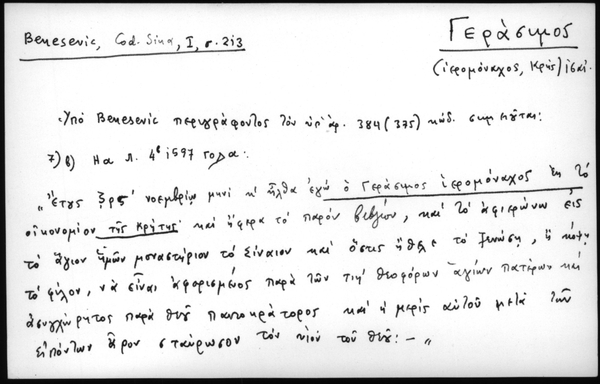 Benesevic, Cod. Sina, I, σ. 213
Γεράσιμος
(ἱερομόναχος, Κρής) ις΄ αἰ.
Ὑπό Benesevic περιγράφοντος τόν ὑπ' ἀρ. 384 (375) κώδ. σημειοῦται:
7) β) На л. 4ᵛ 1597 года:
"Ἔτους ζρϛ΄ νοεμβρίῳ μηνί κ΄ ἦλθα ἐγώ ὁ Γεράσιμος ἱερομόναχος ἐκ τό
οἰκονομίον τῆς Κρήτης καί ἤφερα τό παρόν βιβλίον, καί τό ἀφιερώνω εἰς
τό ἅγιον ἡμῶν μοναστήριον τό Σίναιον καί ὅστις ἤθελε τό ξενώση, ἤ κόψη
τό φύλον, νά εἶναι ἀφορισμένος παρά τῶν τιη΄ θεοφόρων ἁγίων πατέρων καί
ἀσυγχώρητος παρά θεοῦ παντοκράτορος καί ἡ μερίς αὐτοῦ μετά τῶν
εἰπόντων ἆρον σταύρωσον τόν υἱόν τοῦ θεοῦ: — "